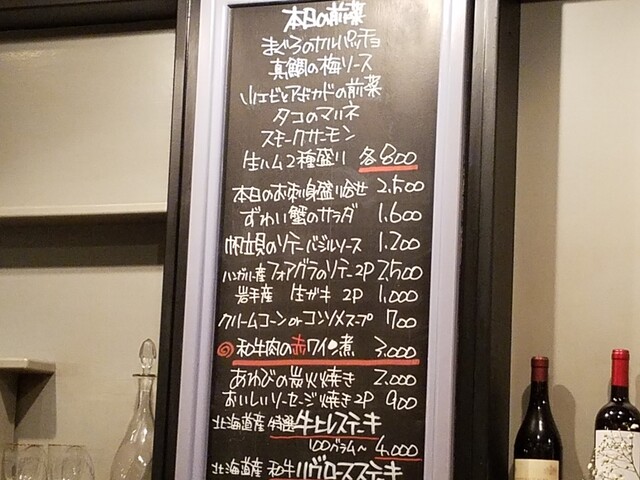 本日の前菜
まぐろのカルパッチョ
真鯛の梅ソース
小エビとアボカドの前菜
タコのマリネ
スモークサーモン
生ハム2種盛り 各800
本日のお刺身盛り合せ 2,500
ずわい蟹のサラダ 1,600
帆立貝のソテーバジルソース 1,200
ハンガリー産フォアグラのソテー2P 2,500
岩手産 生ガキ 2P 1,000
クリームコーン or コンソメスープ 700
和牛肉の赤ワイン煮 3,000
あわびの炭火焼き 2,000
おいしいソーセージ焼き2P 900
北海道産 特選牛ヒレステーキ
100グラム〜 4,000
北海道産 和牛リヴロースステーキ